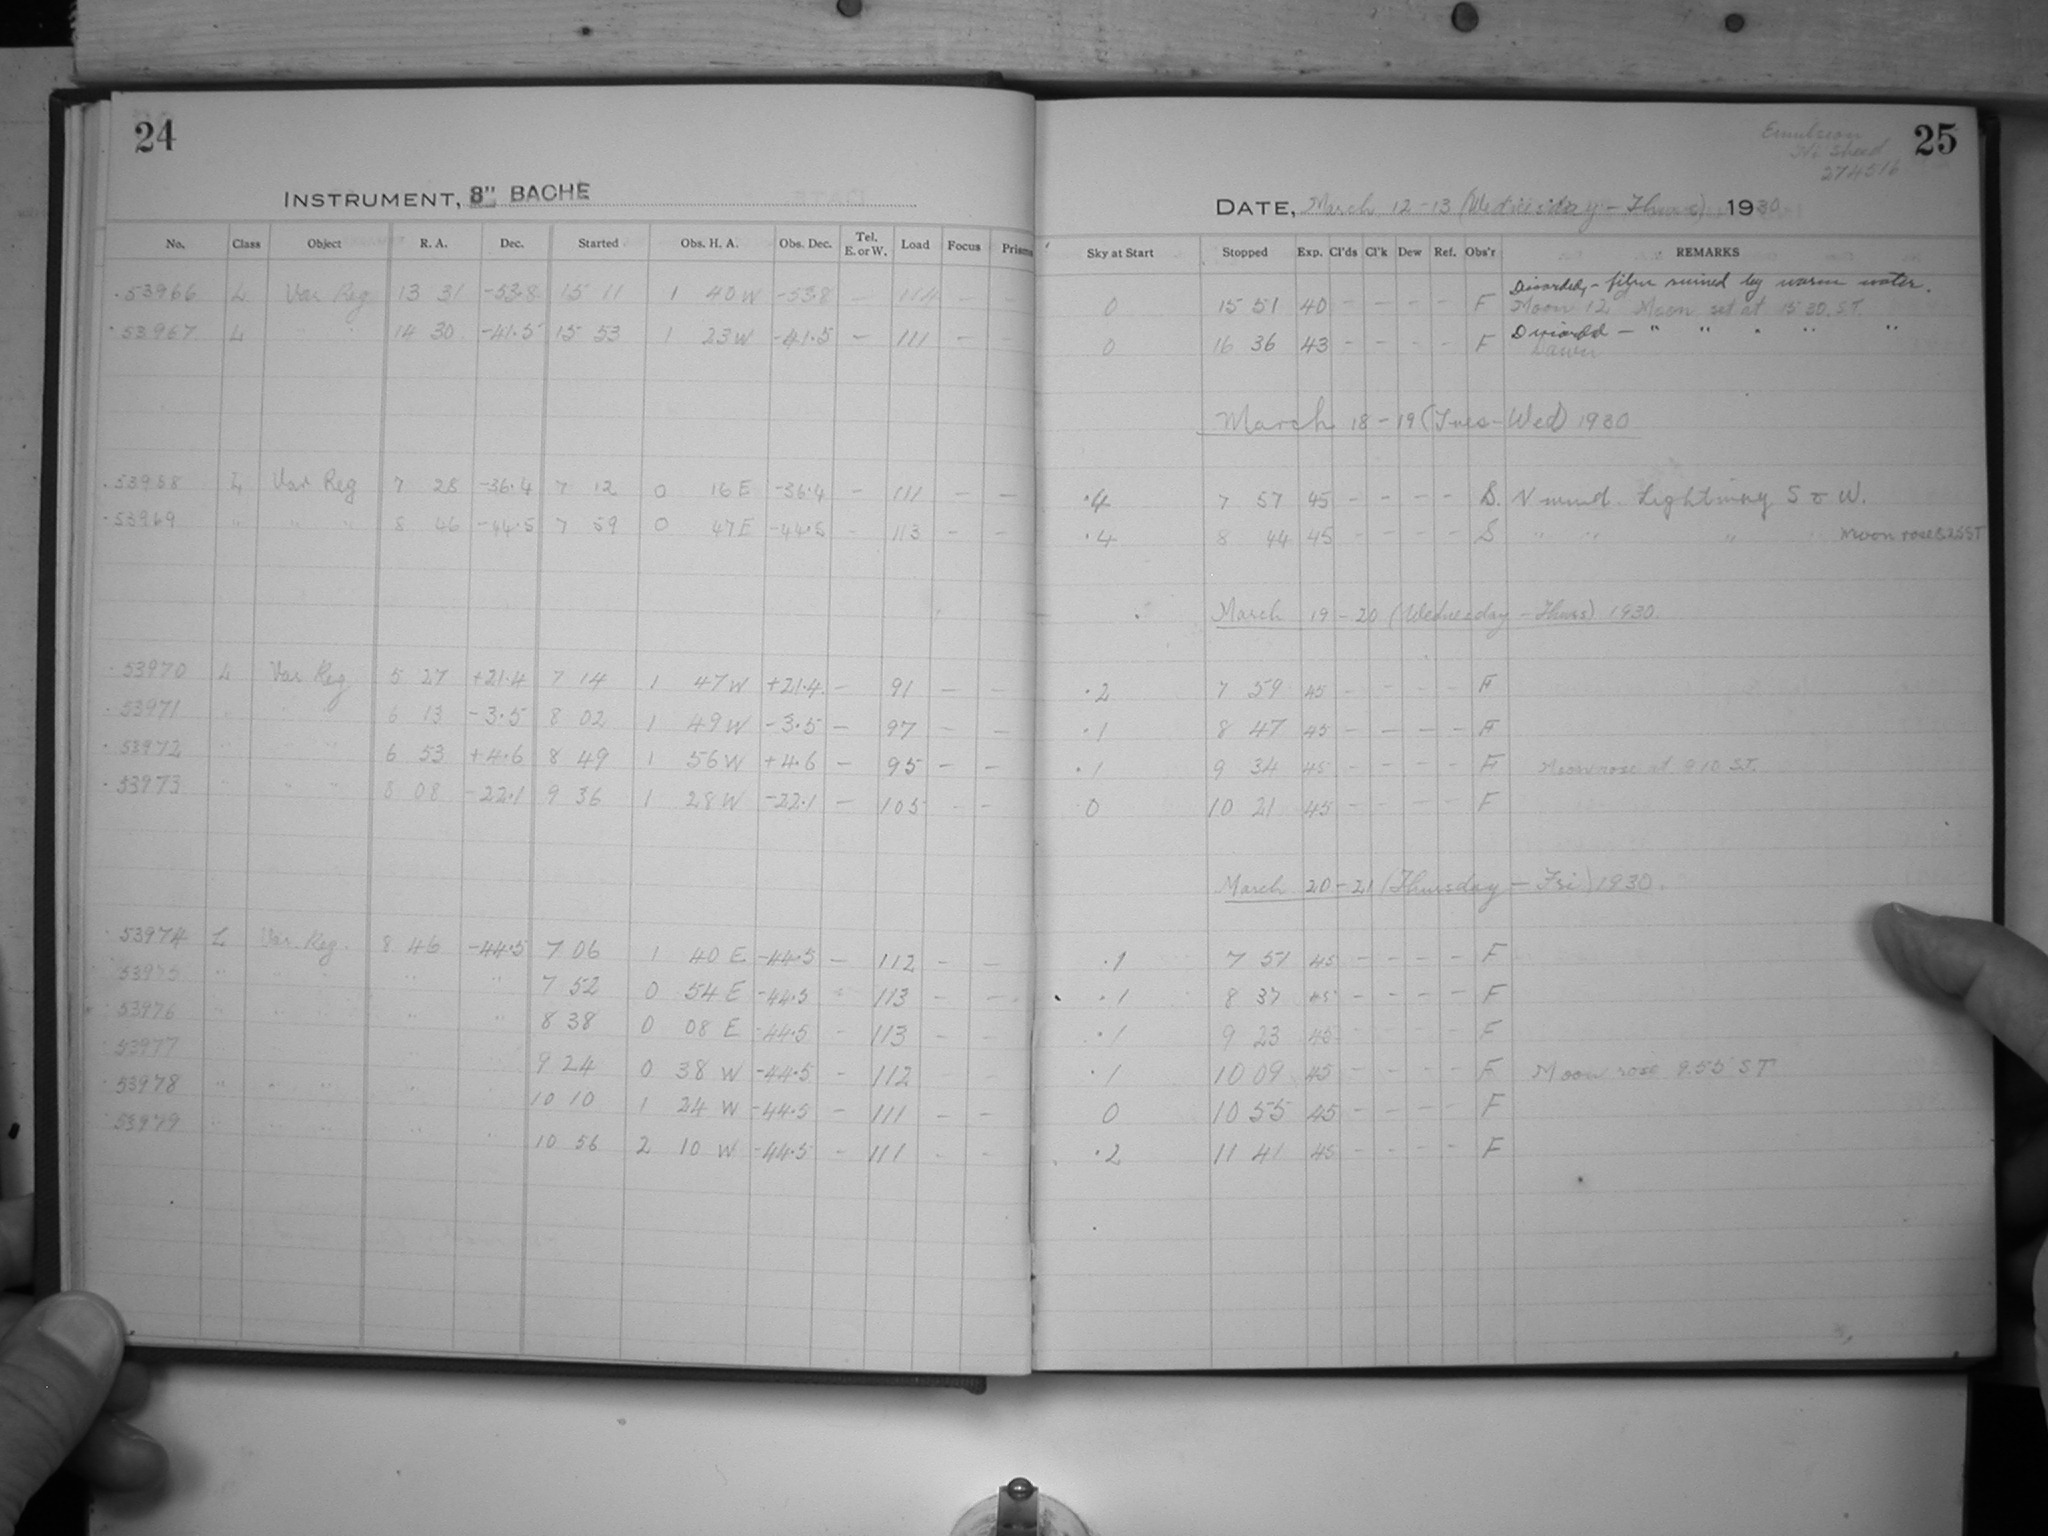 24
INSTRUMENT, 8" BACHE
No. Class Object R. A. Dec. Started Obs. H. A. Obs. Dec. Tel. E. or W. Load Focus Prisms
53966 L Var Reg 13 31 -53.8 15 11 1 40 W -53.8 114 - -
53967 L " " 14 30 -41.5 15 53 1 23 W -41.5 - 111 - -
53968 L Var Reg 7 28 -36.4 7 12 0 16 E -36.4 - 111 - -
53969 " " " 8 46 -44.5 7 59 0 47 E -44.5 - 113 - -
53970 L Var Reg 5 27 +21.4 7 14 1 47 W +21.4 - 91 - -
53971 " " " 6 13 -3.5 8 02 1 49 W -3.5 - 97 - -
53972 " " " 6 53 +4.6 8 49 1 56 W +4.6 - 95 - -
53973 " " " 8 08 -22.1 9 36 1 28 W -22.1 - 105 - -
53974 L Var Reg. 8 46 -44.5 7 06 1 40 E -44.5 - 112 - -
53975 " " " " " 7 52 0 54 E -44.5 - 113 - -
53976 " " " " " 8 38 0 08 E -44.5 - 113 - -
53977 9 24 0 38 W -44.5 - 112 - -
53978 " " " " " 10 10 1 24 W -44.5 - 111 - -
53979 " " " " " 10 56 2 10 W -44.5 - 111 - -
25
Emulsion
274516
DATE, March 12-13 (Wednesday - Thurs) 1930
Sky at Start Stopped Exp. Cl'ds Cl'k Dew Ref. Obs'r REMARKS
Discarded - film ruined by warm water.
0 15 51 40 - - - - F Moon 12 Moon set at 15 30 ST.
Discarded - " " " " "
0 16 36 43 - - - - F Dawn
March 18-19 (Tues-Wed) 1930
.4 7 57 45 - - - - S. Lightning S & W.
.4 8 44 45 - - - - S " " " Moon rose 8.25 ST
March 19-20 (Wednesday - Thurs) 1930.
.2 7 59 45 - - - - F
.1 8 47 45 - - - - F
.1 9 34 45 - - - - F Moon rose at 9 10 ST.
0 10 21 45 - - - - F
March 20-21 (Thursday - Fri) 1930.
.1 7 51 45 - - - - F
.1 8 37 45 - - - - F
.1 9 23 45 - - - - F
.1 10 09 45 - - - - F Moon rose 9.55 ST
0 10 55 45 - - - - F
.2 11 41 45 - - - - F